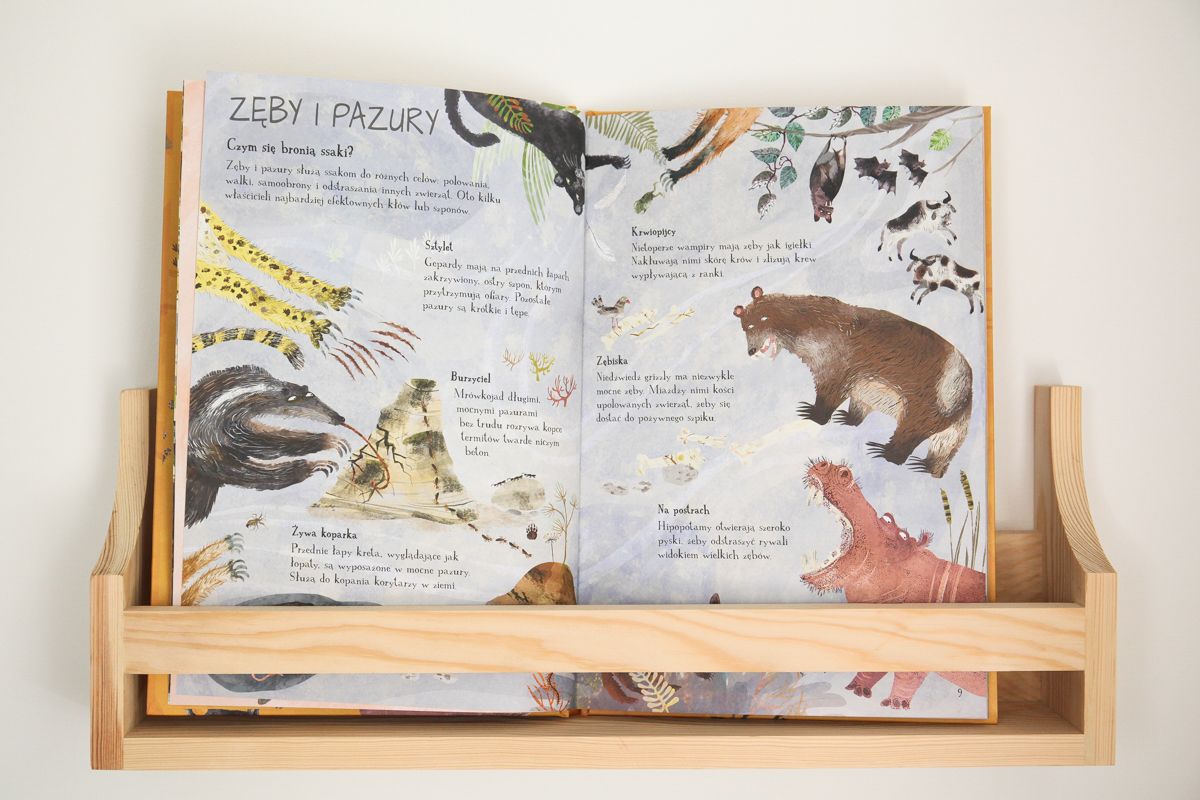 ZĘBY I PAZURY
Czym się bronią ssaki?
Zęby i pazury służą ssakom do różnych celów: polowania,
walki, samoobrony i odstraszania innych zwierząt. Oto kilku
właścicieli najbardziej efektownych kłów lub szponów.
Sztylet
Gepardy mają na przednich łapach
zakrzywiony, ostry szpon, którym
przytrzymują ofiary. Pozostałe
pazury są krótkie i tępe.
Burzyciel
Mrówkojad długimi,
mocnymi pazurami
bez trudu rozrywa kopce
termitów twarde niczym
beton.
Żywa koparka
Przednie łapy kreta, wyglądające jak
łopaty, są wyposażone w mocne pazury.
Służą do kopania korytarzy w ziemi.
Krwiopijcy
Nietoperze wampiry mają zęby jak igiełki.
Nakłuwają nimi skórę krów i zlizują krew
wypływającą z ranki.
Zębiska
Niedźwiedź grizzly ma niezwykle
mocne zęby. Miażdży nimi kości
upolowanych zwierząt, żeby się
dostać do pożywnego szpiku.
Na postrach
Hipopotamy otwierają szeroko
pyski, żeby odstraszyć rywali
widokiem wielkich zębów.
9